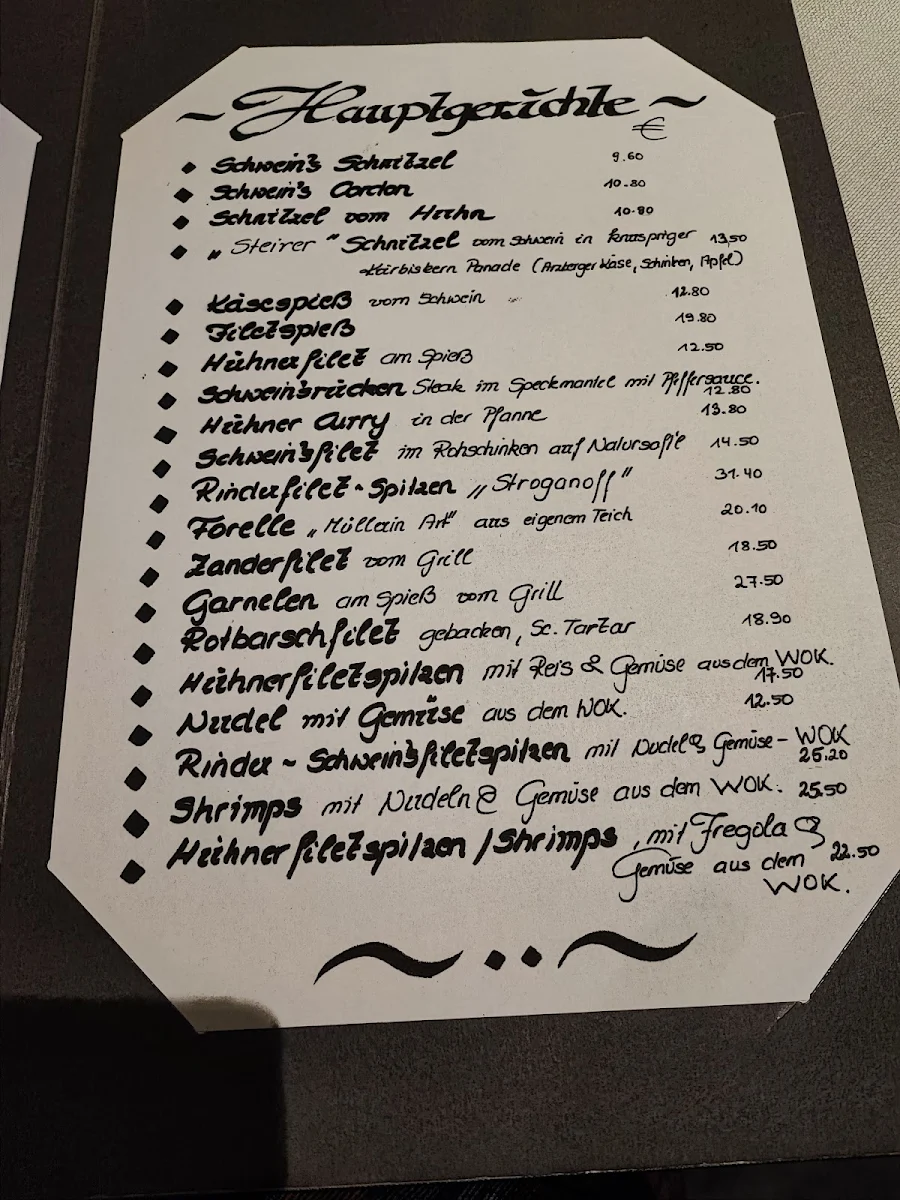 ~ Hauptgerichte ~
€
Schwein's Schnitzel 9.60
Schwein's Cordon 10.80
Schnitzel vom Huhn 10.80
„Steirer" Schnitzel vom Schwein in knuspriger 13,50
Kürbiskern Panade (Arzberger Käse, Schinken, Apfel)
Käsespieß vom Schwein 12.80
Filetspieß 19.80
Hühnerfilet am Spieß 12.50
Schweinsrücken Steak im Speckmantel mit Pfeffersauce.
12.80
Hühner Curry in der Pfanne 13.80
Schwein'sfilet im Rohschinken auf Natursaftl 14.50
Rinderfilet-Spitzen „Stroganoff" 31.40
Forelle „Müllerin Art" aus eigenem Teich 20.10
Zanderfilet vom Grill 18.50
Garnelen am Spieß vom Grill 27.50
Rotbarschfilet gebacken, Sc. Tartar 18.90
Hühnerfiletspitzen mit Reis & Gemüse aus dem WOK.
17.50
Nudel mit Gemüse aus dem WOK. 12.50
Rinder ~ Schweinsfiletspitzen mit Nudel & Gemüse - WOK
25,20
Shrimps mit Nudeln & Gemüse aus dem WOK. 25.50
Hühnerfiletspitzen / Shrimps, mit Fregola &
Gemüse aus dem 22.50
WOK.